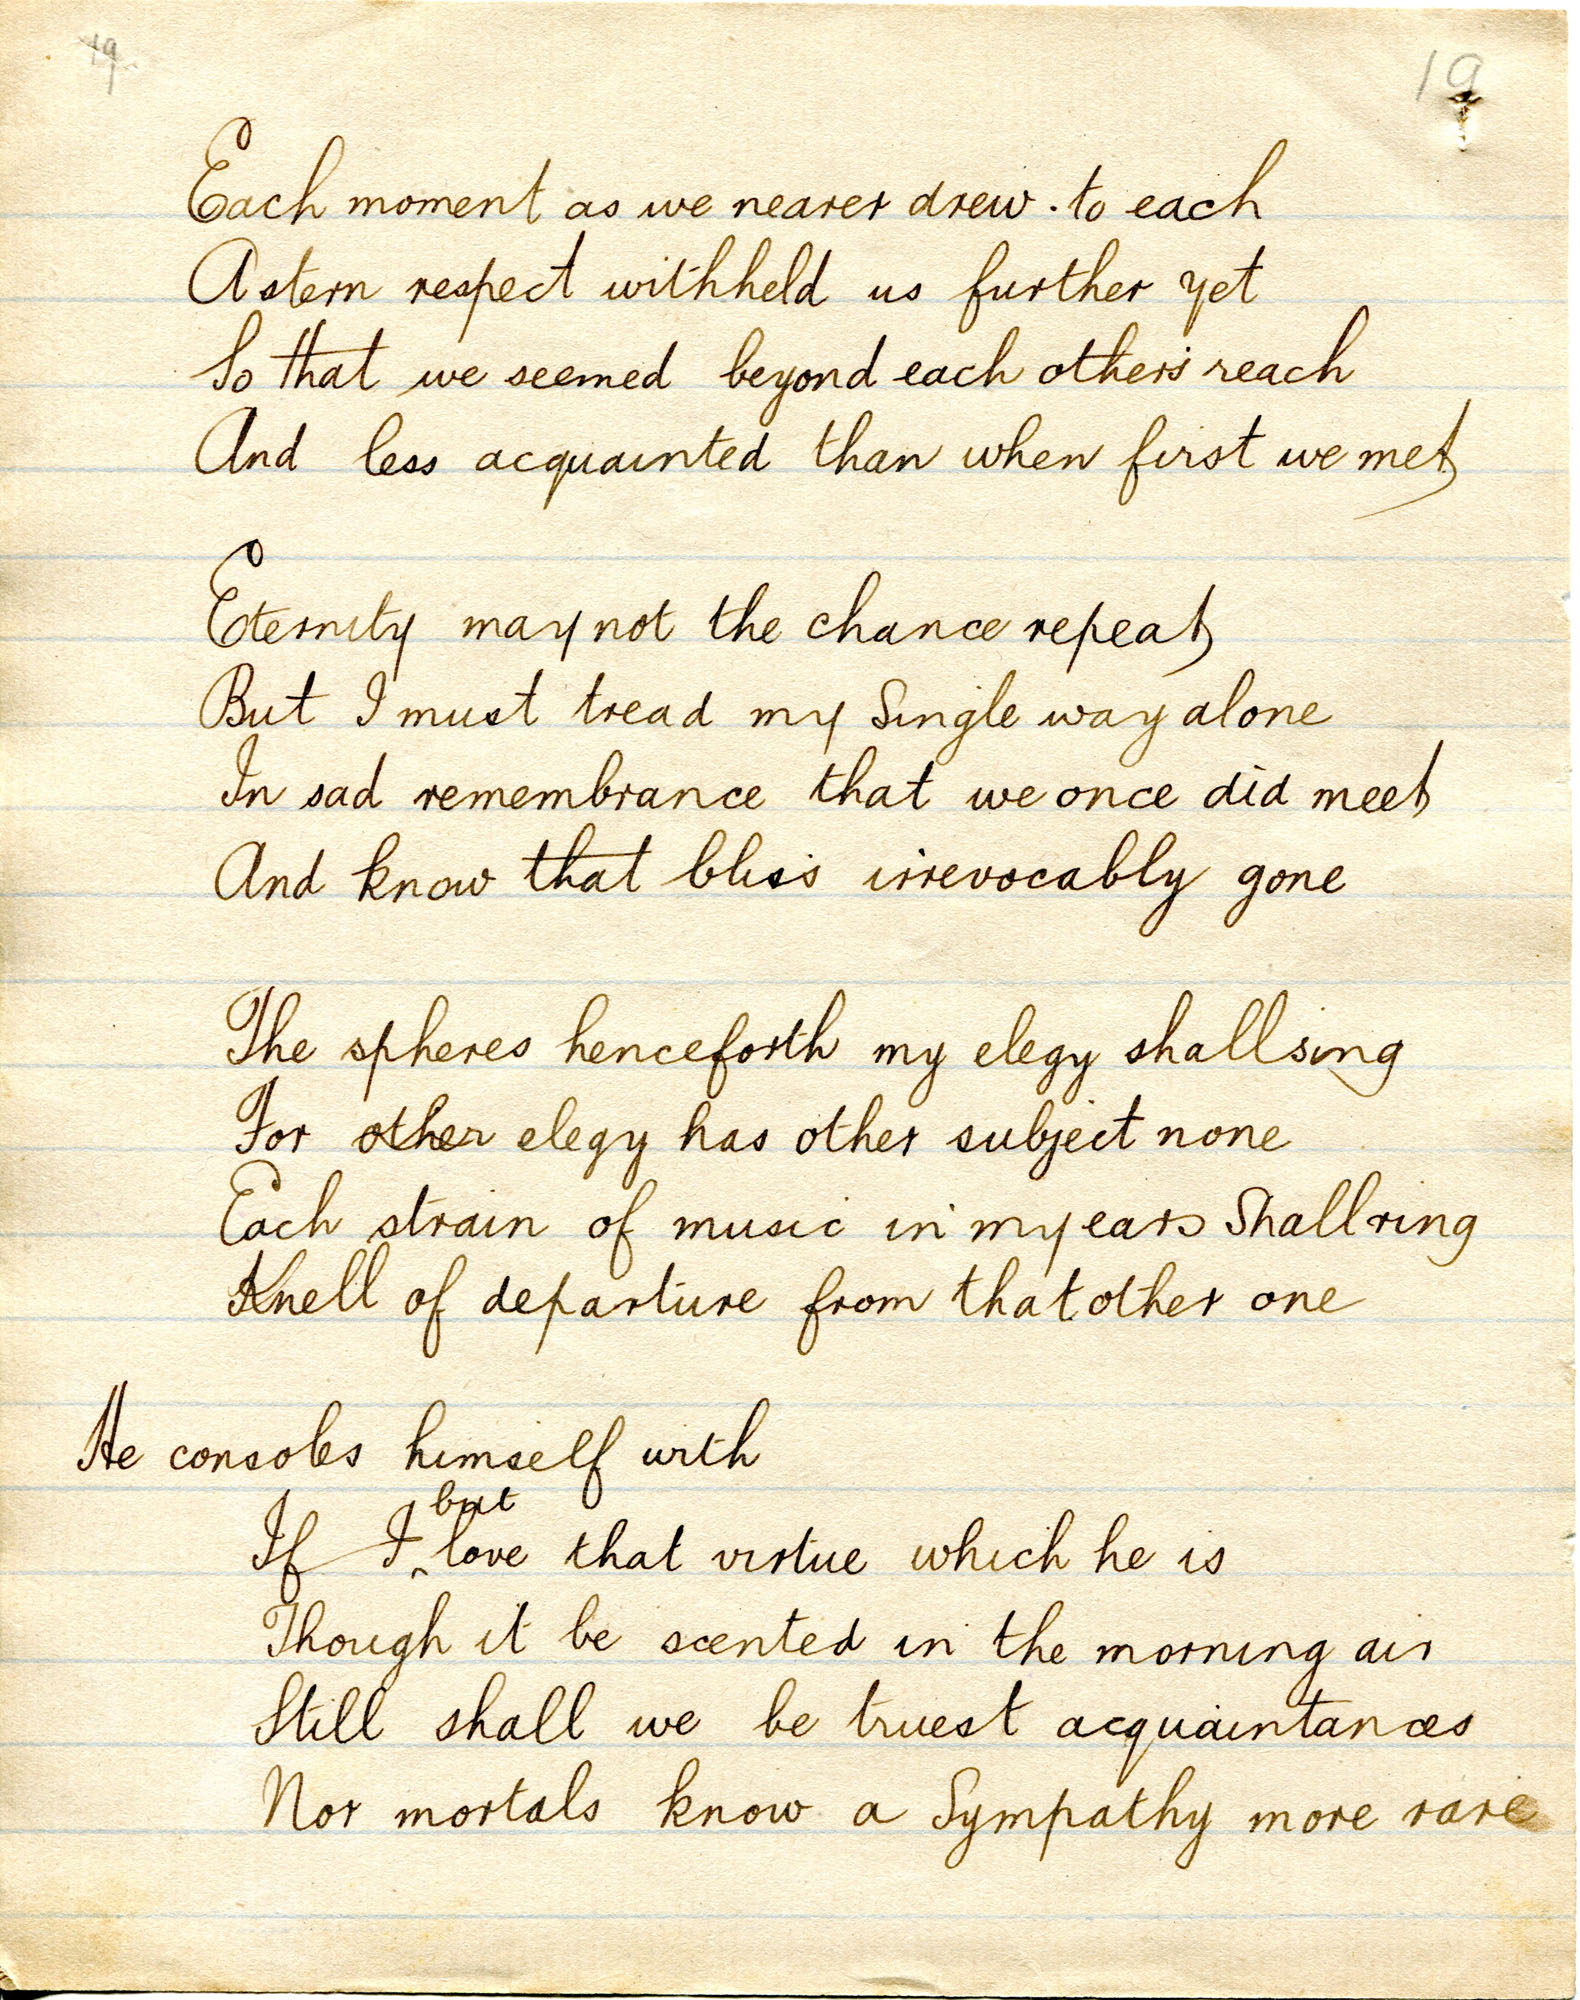 19
19
Each moment as we nearer drew . to each
A stern respect withheld us further yet
So that we seemed beyond each other's reach
And less acquainted than when first we met
Eternity may not the chance repeat
But I must tread my single way alone
In sad remembrance that we once did meet
And know that bliss irrevocably gone
The spheres henceforth my elegy shall sing
For other elegy has other subject none
Each strain of music in my ears shall ring
Knell of departure from that other one
He consoles himself with
but
If I ‸ love that virtue which he is
Though it be scented in the morning air
Still shall we be truest acquaintances
Nor mortals know a Sympathy more rare